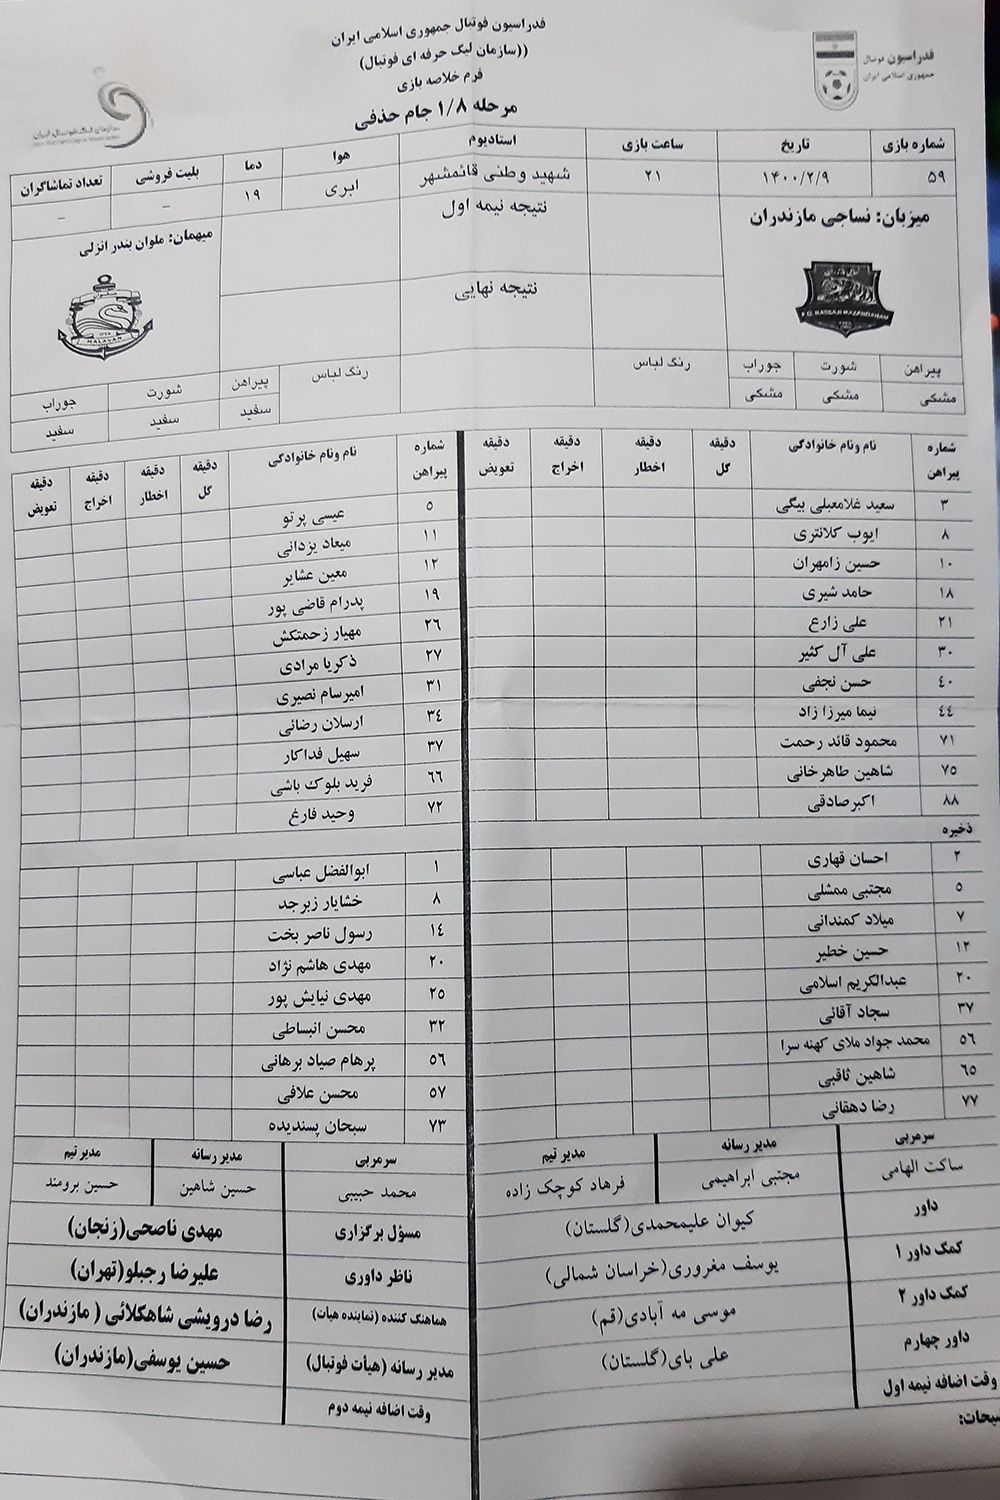 فدراسیون فوتبال جمهوری اسلامی ایران
((سازمان لیگ حرفه ای فوتبال)
فرم خلاصه بازی
مرحله ۱/۸ جام حذفی
فدراسیون فوتبال
جمهوری اسلامی ایران
شماره بازی تاریخ ساعت بازی استادیوم هوا دما بلیت فروشی تعداد تماشاگران
۵۹ ۱۴۰۰/۲/۹ ۲۱ شهید وطنی قائمشهر ابری ۱۹ – –
میزبان: نساجی مازندران نتیجه نیمه اول میهمان: ملوان بندر انزلی
نتیجه نهایی
F.C. NASSAJI MAZANDARAN
MALAVAN
پیراهن شورت جوراب رنگ لباس رنگ لباس پیراهن شورت جوراب
مشکی مشکی مشکی سفید سفید سفید
شماره پیراهن نام ونام خانوادگی دقیقه گل دقیقه اخطار دقیقه اخراج دقیقه تعویض شماره پیراهن نام ونام خانوادگی دقیقه گل دقیقه اخطار دقیقه اخراج دقیقه تعویض
۳ سعید غلامعبلی بیگی ۵ عیسی پرتو
۸ ایوب کلانتری ۱۱ میعاد یزدانی
۱۰ حسین زامهران ۱۲ معین عشایر
۱۸ حامد شیری ۱۹ پدرام قاضی پور
۲۱ علی زارع ۲۶ مهیار زحمتکش
۳۰ علی آل کثیر ۲۷ ذکریا مرادی
۴۰ حسن نجفی ۳۱ امیرسام نصیری
۴۴ نیما میرزا زاد ۳۴ ارسلان رضائی
۷۱ محمود قائد رحمت ۳۷ سهیل فداکار
۷۵ شاهین طاهرخانی ۶۶ فرید بلوک باشی
۸۸ اکبرصادقی ۷۲ وحید فارغ
ذخیره
۲ احسان قهاری ۱ ابوالفضل عباسی
۵ مجتبی ممشلی ۸ خشایار زبرجد
۷ میلاد کمندانی ۱۴ رسول ناصر بخت
۱۲ حسین خطیر ۲۰ مهدی هاشم نژاد
۲۰ عبدالکریم اسلامی ۲۵ مهدی نیایش پور
۳۷ سجاد آقائی ۳۲ محسن انبساطی
۵۶ محمد جواد ملای کهنه سرا ۵۶ پرهام صیاد برهانی
۶۵ شاهین ثاقبی ۵۷ محسن علافی
۷۷ رضا دهقانی ۷۳ سبحان پسندیده
سرمربی مدیر رسانه مدیر تیم سرمربی مدیر رسانه مدیر تیم
ساکت الهامی مجتبی ابراهیمی فرهاد کوچک زاده محمد حبیبی حسین شاهین حسین برومند
داور کیوان علیمحمدی(گلستان) مسؤل برگزاری مهدی ناصحی(زنجان)
کمک داور ۱ یوسف مغروری(خراسان شمالی) ناظر داوری علیرضا رجبلو(تهران)
کمک داور ۲ موسی مه آبادی(قم) هماهنگ کننده (نماینده هیأت) رضا درویشی شاهکلائی ( مازندران)
داور چهارم علی بای(گلستان) مدیر رسانه (هیأت فوتبال) حسین یوسفی(مازندران)
وقت اضافه نیمه اول وقت اضافه نیمه دوم